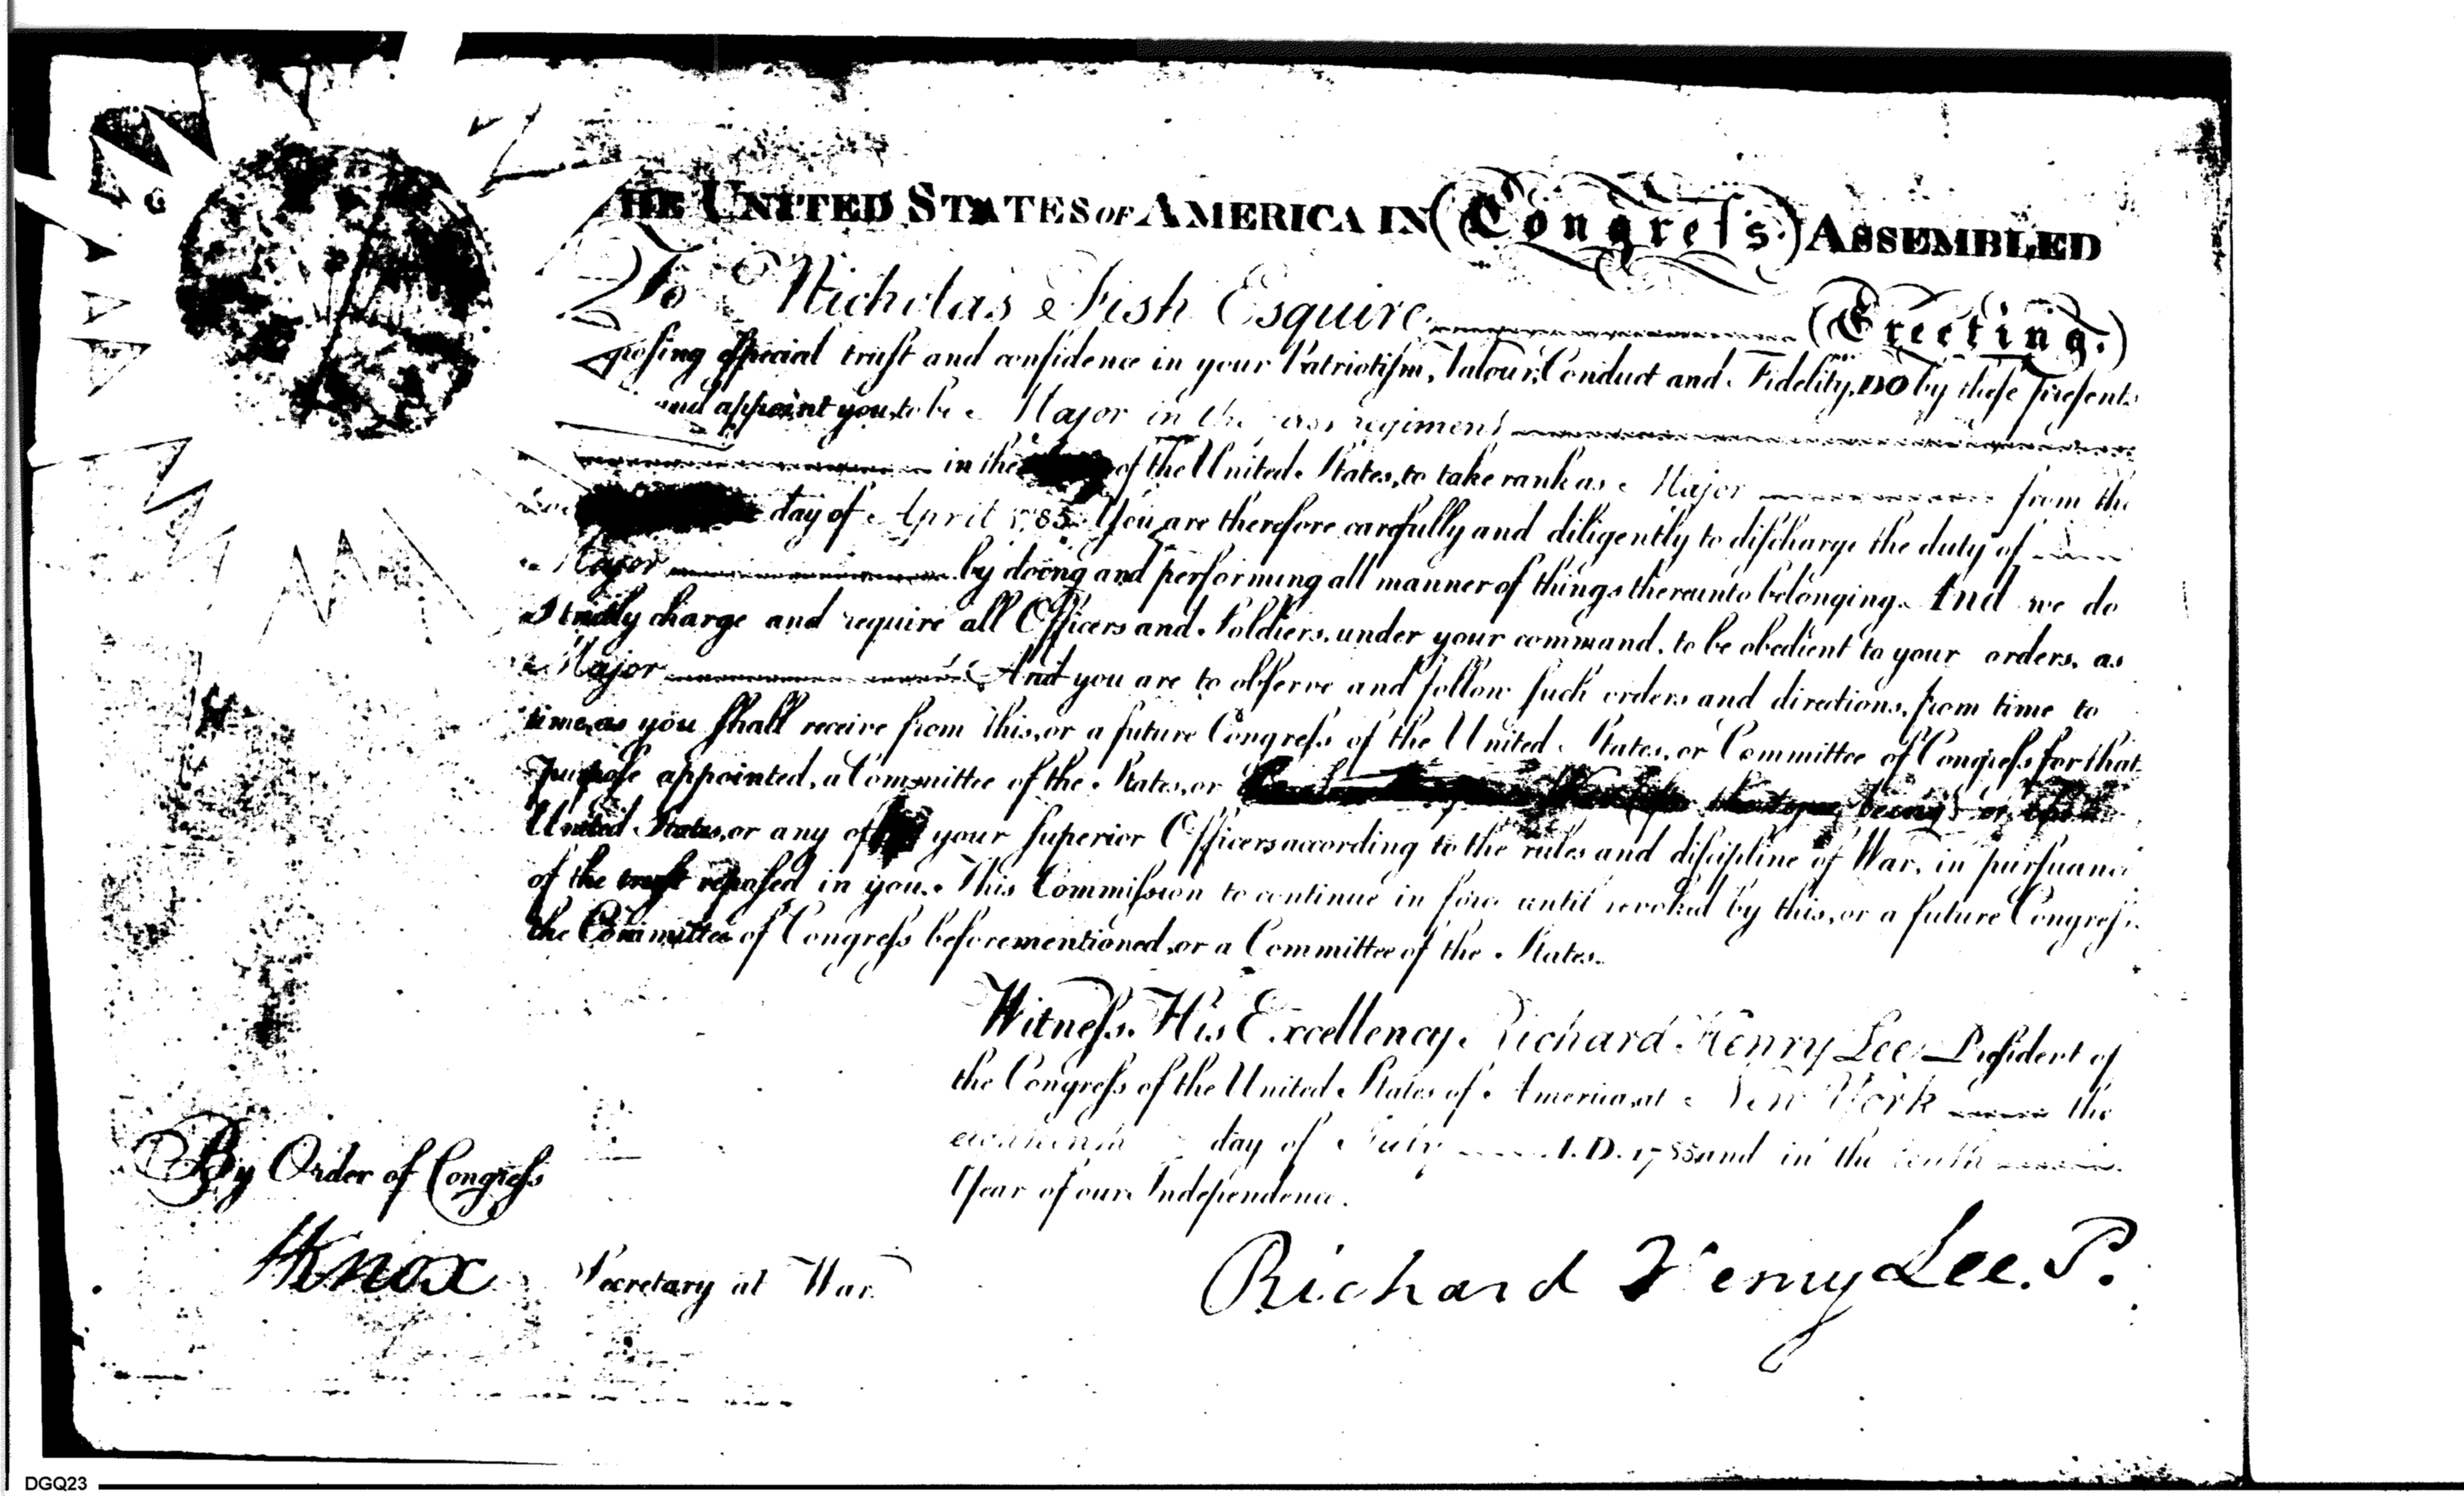 HE UNITED STATES OF AMERICA IN (Congreſs) ASSEMBLED
To Nicholas Fish Esquire (Greeting.)
poſing eſpecial truſt and confidence in your Patriotiſm, Valour, Conduct and Fidelity, DO by theſe preſents
and appoint you to be a Major in the regiment
in the of the United States, to take rank as a Major from the
day of April 1785. You are therefore carefully and diligently to diſcharge the duty of
a Major by doing and performing all manner of things thereunto belonging. And we do
Strictly charge and require all Officers and Soldiers, under your command, to be obedient to your orders, as
a Major And you are to obſerve and follow ſuch orders and directions, from time to
time, as you ſhall receive from this, or a future Congreſs of the United States, or Committee of Congreſs for that
purpoſe appointed, a Committee of the States, or
United States, or any of your ſuperior Officers according to the rules and diſcipline of War, in purſuance
of the truſt repoſed in you. This Commiſsion to continue in force until revoked by this, or a future Congreſs.
the Committee of Congreſs beforementioned, or a Committee of the States.
Witneſs. His Excellency Richard Henry Lee Preſident of
the Congreſs of the United States of America, at New York the
day of July A.D. 1785 and in the tenth
Year of our Independence.
By Order of Congreſs
HKnox Secretary at War
Richard Henry Lee. P.
DGQ23